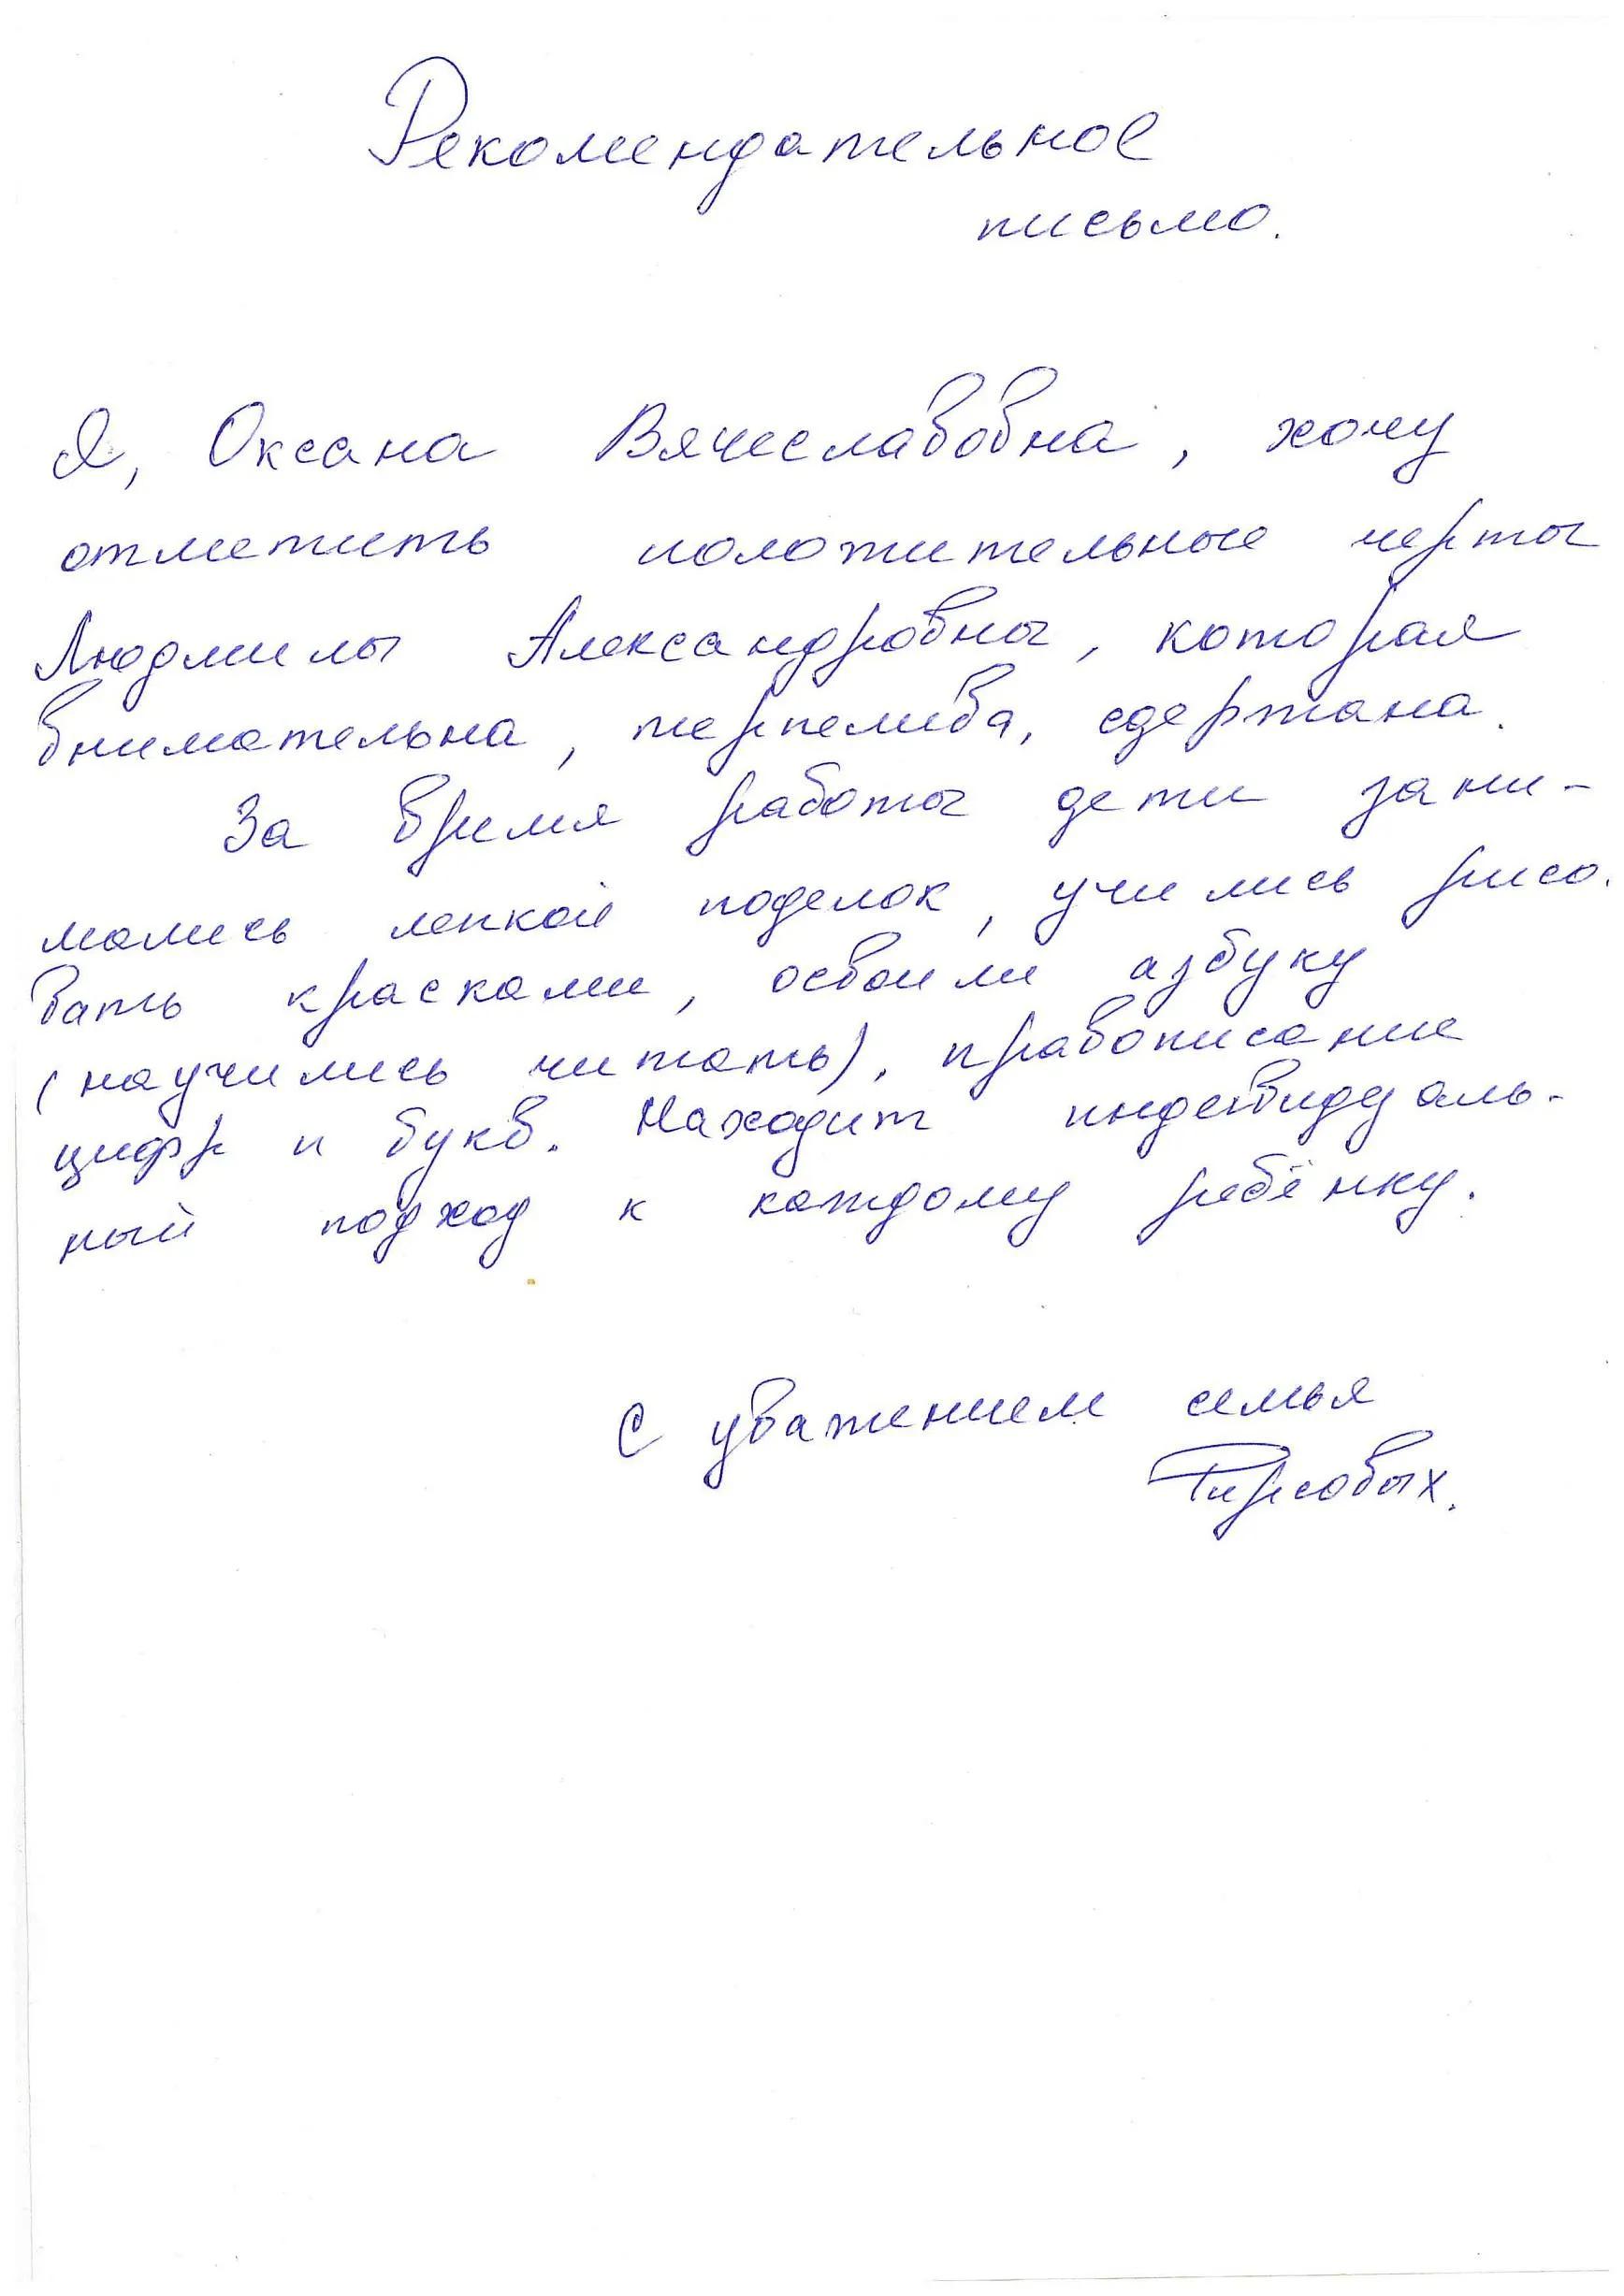 Рекомендательное
письмо.
Я, Оксана Вячеславовна, хочу
отметить положительные черты
Людмилы Александровны, которая
внимательна, терпелива, сдержана.
За время работы дети зани-
мались лепкой поделок, учились рисо-
вать красками, освоили азбуку
(научились читать), правописание
цифр и букв. Находит индевидуаль-
ный подход к каждому ребёнку.
С уважением семья